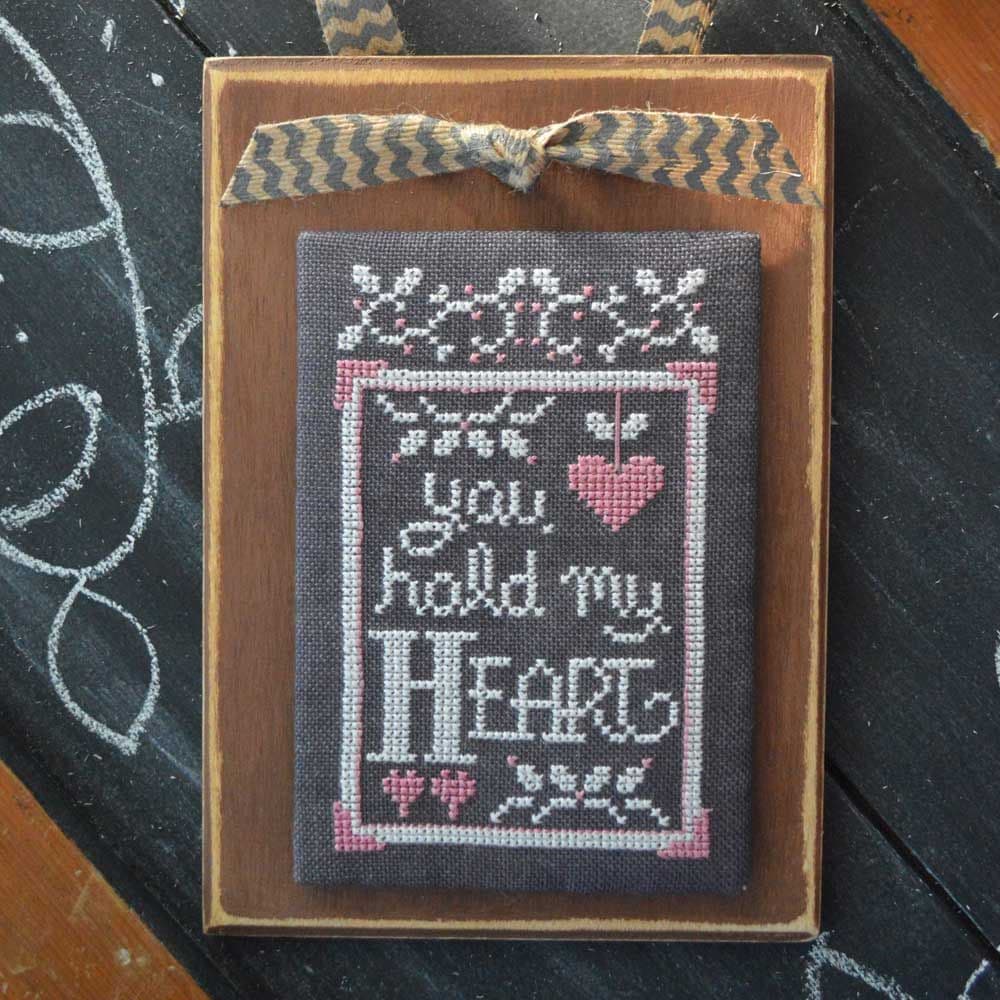 you
hold my
HEART